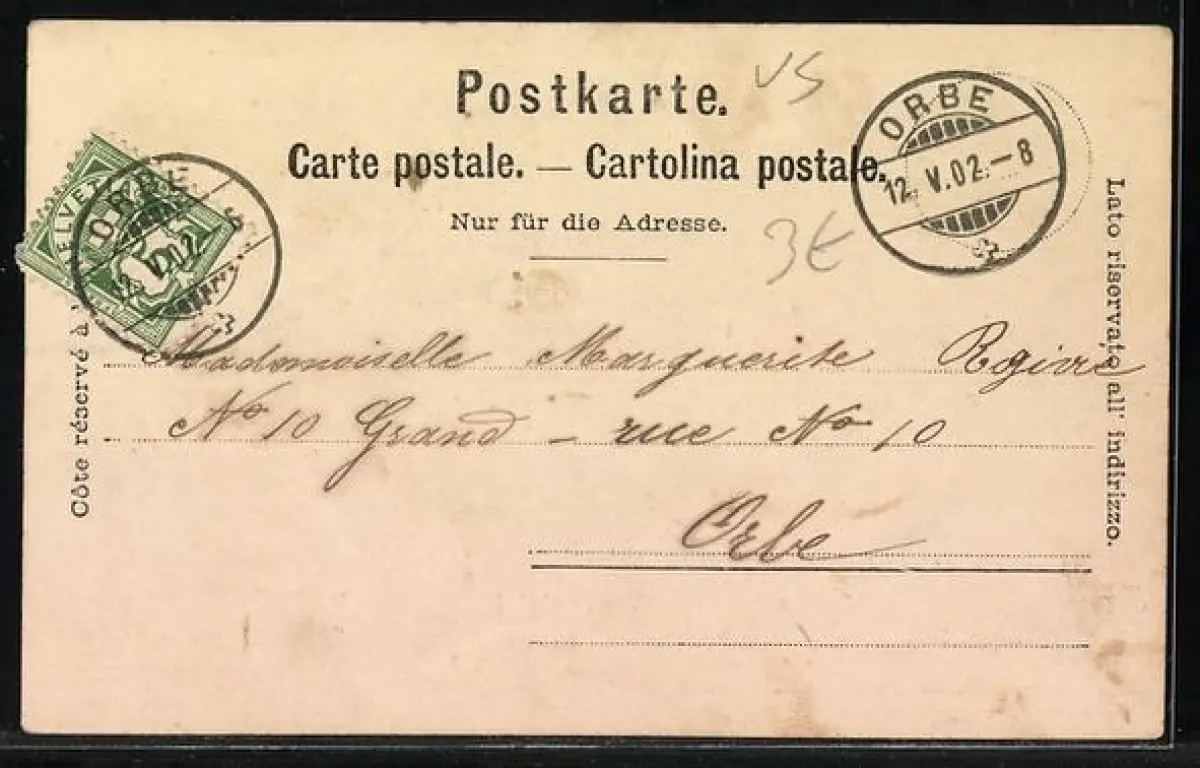 Postkarte.
VS
Carte postale. — Cartolina postale.
Nur für die Adresse.
3€
ORBE
12. V. 02. — 8
HELVETIA
ORBE
12. V. 02
Côté réservé à
Lato riservato all' indirizzo.
Mademoiselle Marguerite
No 10 Grand - rue No 10
Orbe